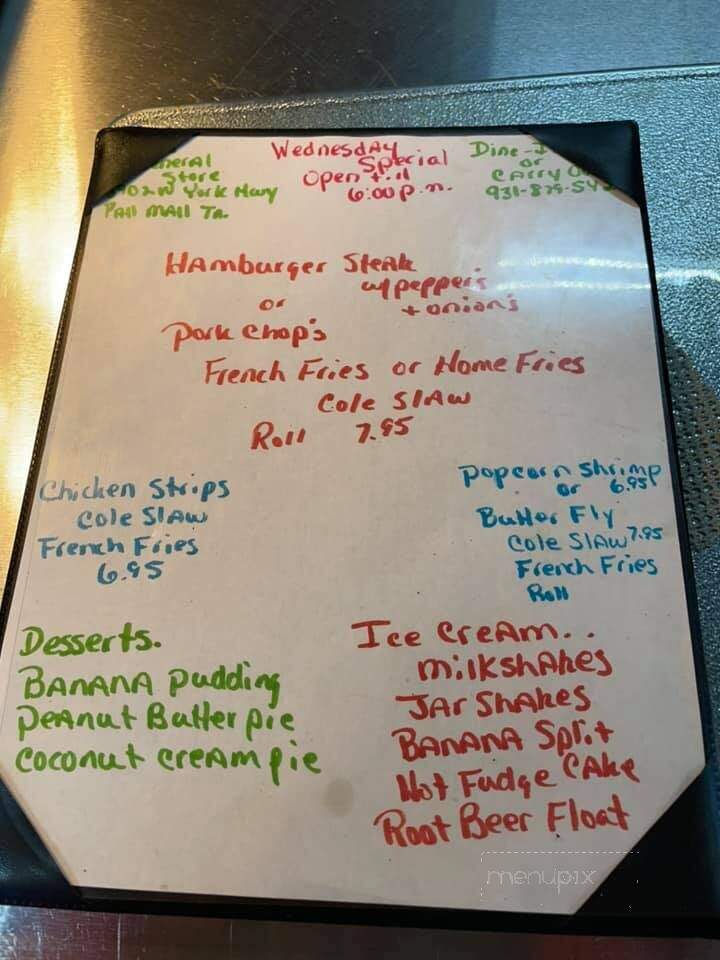 Store
York Hwy
Pall Mall Tn.
Wednesday
Special
Open till
6:00 p.m.
Dine-
or
Carry
Hamburger Steak
w/pepper's
+ onion's
or
Pork Chop's
French Fries or Home Fries
Cole Slaw
Roll 7.95
Chicken Strips
Cole Slaw
French Fries
6.95
Popcorn Shrimp
or 6.95
Butter Fly
Cole Slaw 7.95
French Fries
Roll
Desserts.
Banana Pudding
Peanut Butter pie
Coconut cream pie
Ice Cream..
Milkshakes
Jar Shakes
Banana Split
Hot Fudge Cake
Root Beer Float
menupix